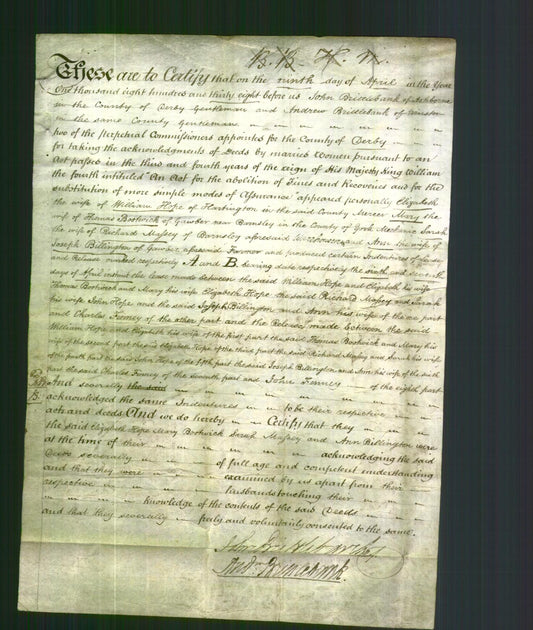 B.B. H. M.
These are to Certify that on the ninth day of April in the Year
One thousand eight hundred and thirty eight before us John Bridlebank of Ashborne
in the County of Derby Gentleman and Andrew Bridlebank of
in the same County Gentleman
two of the Perpetual Commissioners appointed for the County of Derby
for taking the acknowledgments of Deeds by married Women pursuant to an
Act passed in the third and fourth years of the reign of His Majesty King William
the fourth intituled "An Act for the abolition of Fines and Recoveries and for the
substitution of more simple modes of Assurance" appeared personally Elizabeth
the wife of William Hope of Hartington in the said County Mercer Mary the
wife of Thomas Bostwick of Gawber near Barnsley in the County of York Mechanic Sarah
the wife of Richard Massey of Barnsley aforesaid and Ann the wife of
Joseph Billington of Gawber aforesaid Farmer and produced certain Indentures of Lease
and Release marked respectively A and B bearing date respectively the sixth and seventh
days of April instant the Lease made between the said William Hope and Elizabeth his wife
Thomas Bostwick and Mary his wife Elizabeth Hope the said Richard Massey and Sarah
his wife John Hope and the said Joseph Billington and Ann his wife of the one part
and Charles Finney of the other part and the Release made between the said
William Hope and Elizabeth his wife of the first part the said Thomas Bostwick and Mary his
wife of the second part the said Elizabeth Hope of the third part the said Richard Massey and Sarah his wife
of the fourth part the said John Hope of the fifth part the said Joseph Billington and Ann his wife of the sixth
part the said Charles Finney of the seventh part and John Finney of the eighth part
And severally the said
acknowledged the same Indentures to be their respective
acts and deeds And we do hereby Certify that they
the said Elizabeth Hope Mary Bostwick Sarah Massey and Ann Billington were
at the time of their acknowledging the said
Deeds severally of full age and competent understanding
and that they were examined by us apart from their
respective husbands touching their
knowledge of the contents of the said Deeds
and that they severally freely and voluntarily consented to the same.